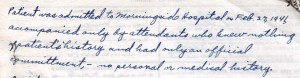 Patient was admitted to Morningside Hospital on Feb. 27, 1946
accompanied only by attendants who knew nothing
of patient's history and had only an official
committment - no personal or medical history.